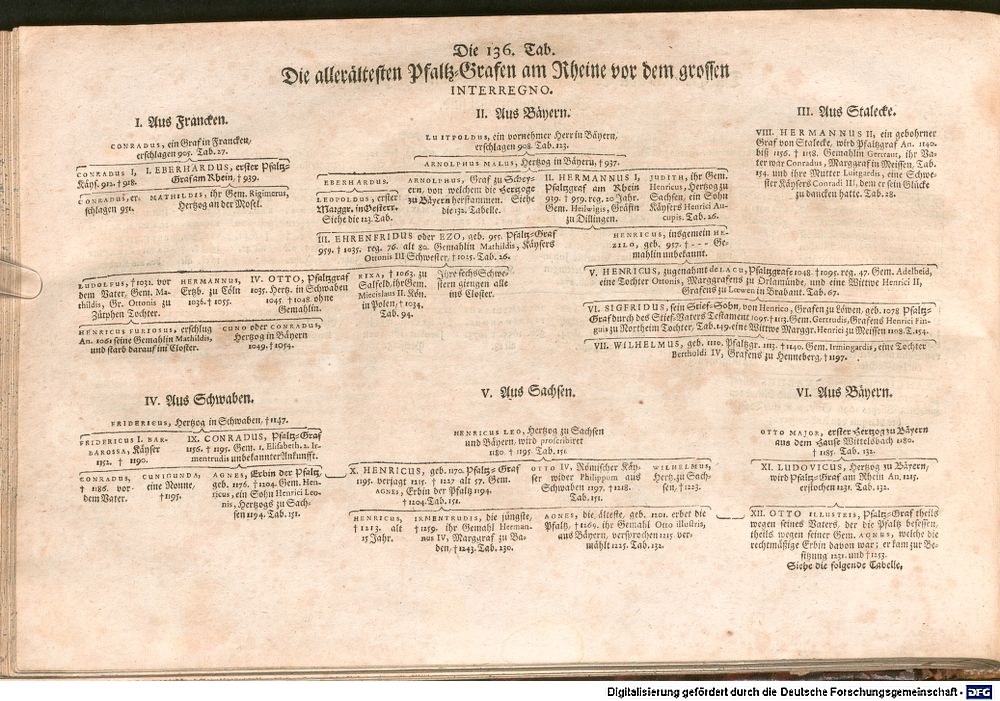 Die 136. Tab.
Die allerältesten Pfaltz-Grafen am Rheine vor dem grossen
INTERREGNO.
I. Aus Francken.
CONRADUS, ein Graf in Francken,
erschlagen 905. Tab. 27.
CONRADUS I,
Käys. 912. † 918.
I. EBERHARDUS, erster Pfaltz-
Graf am Rhein, † 939.
CONRADUS, er-
schlagen 951.
MATHILDIS, ihr Gem. Rigimerus,
Hertzog an der Mosel.
II. Aus Bäyern.
LUITPOLDUS, ein vornehmer Herr in Bäyern,
erschlagen 908. Tab. 123.
ARNOLPHUS MALUS, Hertzog in Bäyern, † 937.
EBERHARDUS.
LEOPOLDUS, erster
Marggr. in Oesterr.
Siehe die 123. Tab.
ARNOLPHUS, Graf zu Schey-
ern, von welchem die Hertzoge
zu Bäyern herstammen. Siehe
die 132. Tabelle.
II. HERMANNUS I,
Pfaltzgraf am Rhein
919. † 959. reg. 20 Jahr.
Gem. Heilwigis, Gräfin
zu Dillingen.
JUDITH, ihr Gem.
Henricus, Hertzog zu
Sachsen, ein Sohn
Käysers Henrici Au-
cupis. Tab. 26.
III. EHRENFRIDUS oder EZO, geb. 955. Pfaltz-Graf
959. † 1035. reg. 76. alt 80. Gemahlin Mathildis, Käysers
Ottonis III Schwester, † 1025. Tab. 26.
HENRICUS, insgemein HE-
ZILO, geb. 957. † - - - Ge-
mahlin unbekannt.
LUDOLFUS, † 1031. vor
dem Vater, Gem. Ma-
thildis, Gr. Ottonis zu
Zütphen Tochter.
HERMANNUS,
Ertzb. zu Cöln
1036. † 1055.
IV. OTTO, Pfaltzgraf
1035. Hertz. in Schwaben
1045. † 1048. ohne
Gemahlin.
RIXA, † 1063. zu
Salfeld, ihr Gem.
Miecislaus II. Kön.
in Polen, † 1034.
Tab. 94.
Ihre sechs Schwe-
stern giengen alle
ins Closter.
HENRICUS FURIOSUS, erschlug
An. 1061. seine Gemahlin Mathildis,
und starb darauf im Closter.
CUNO oder CONRADUS,
Hertzog in Bäyern
1049. † 1054.
V. HENRICUS, zugenahmt de LACU, Pfaltzgrafe 1048. † 1095. reg. 47. Gem. Adelheid,
eine Tochter Ottonis, Marggrafens zu Orlamünde, und eine Wittwe Henrici II,
Grafens zu Lœwen in Brabant. Tab. 67.
VI. SIGFRIDUS, sein Stief-Sohn, von Henrico, Grafen zu Löwen, geb. 1078 Pfaltz-
Graf durch des Stief-Vaters Testament 1095. † 1113. Gem. Gertrudis, Grafens Henrici Pin-
guis zu Northeim Tochter, Tab. 149. eine Wittwe Marggr. Henrici zu Meissen 1108. T. 154.
VII. WILHELMUS, geb. 1110. Pfaltzgr. 1113. † 1140. Gem. Irmingardis, eine Tochter
Bertholdi IV, Grafens zu Henneberg, † 1197.
III. Aus Stalecke.
VIII. HERMANNUS II, ein gebohrner
Graf von Stalecke, wird Pfaltzgraf An. 1140.
biß 1156. † 1158. Gemahlin Gertraut, ihr Va-
ter war Conradus, Marggraf in Meissen, Tab.
154. und ihre Mutter Luitgardis, eine Schwe-
ster Käysers Conradi III, dem er sein Glücke
zu dancken hatte. Tab. 28.
IV. Aus Schwaben.
FRIDERICUS, Hertzog in Schwaben, † 1147.
FRIDERICUS I. BAR-
BAROSSA, Käyser
1152. † 1190.
IX. CONRADUS, Pfaltz-Graf
1156. † 1195. Gem. 1. Elisabeth. 2. Ir-
mentrudis unbekannter Ankunfft.
CONRADUS,
† 1186. vor-
dem Vater.
CUNIGUNDA,
eine Nonne,
† 1195.
AGNES, Erbin der Pfaltz,
geb. 1176. † 1204. Gem. Hen-
ricus, ein Sohn Henrici Leo-
nis, Hertzogs zu Sach-
sen 1194. Tab. 151.
V. Aus Sachsen.
HENRICUS LEO, Hertzog zu Sachsen
und Bäyern, wird proscribiret
1180. † 1195. Tab. 151.
X. HENRICUS, geb. 1170. Pfaltz-Graf
1195. verjagt 1215. † 1227 alt 57. Gem.
AGNES, Erbin der Pfaltz 1194.
† 1204. Tab. 151.
OTTO IV, Römischer Käy-
ser wider Philippum aus
Schwaben 1197. † 1218.
Tab. 151.
WILHELMUS,
Hertz. zu Sach-
sen, † 1223.
HENRICUS,
† 1213. alt
15 Jahr.
IRMENTRUDIS, die jüngste,
† 1259. ihr Gemahl Herman-
nus IV, Marggraf zu Ba-
den, † 1243. Tab. 230.
AGNES, die älteste, geb. 1201. erbet die
Pfaltz, † 1269. ihr Gemahl Otto illustris,
aus Bäyern, versprochen 1215. ver-
mählt 1225. Tab. 132.
VI. Aus Bäyern.
OTTO MAJOR, erster Hertzog zu Bäyern
aus dem Hause Wittelsbach 1180.
† 1185. Tab. 132.
XI. LUDOVICUS, Hertzog zu Bäyern,
wird Pfaltz-Graf am Rhein An. 1215.
erstochen 1231. Tab. 132.
XII. OTTO ILLUSTRIS, Pfaltz-Graf theils
wegen seines Vaters, der die Pfaltz besessen,
theils wegen seiner Gem. AGNES, welche die
rechtmäßige Erbin davon war; er kam zur Be-
sitzung 1231. und † 1253.
Siehe die folgende Tabelle.
Digitalisierung gefördert durch die Deutsche Forschungsgemeinschaft - DFG